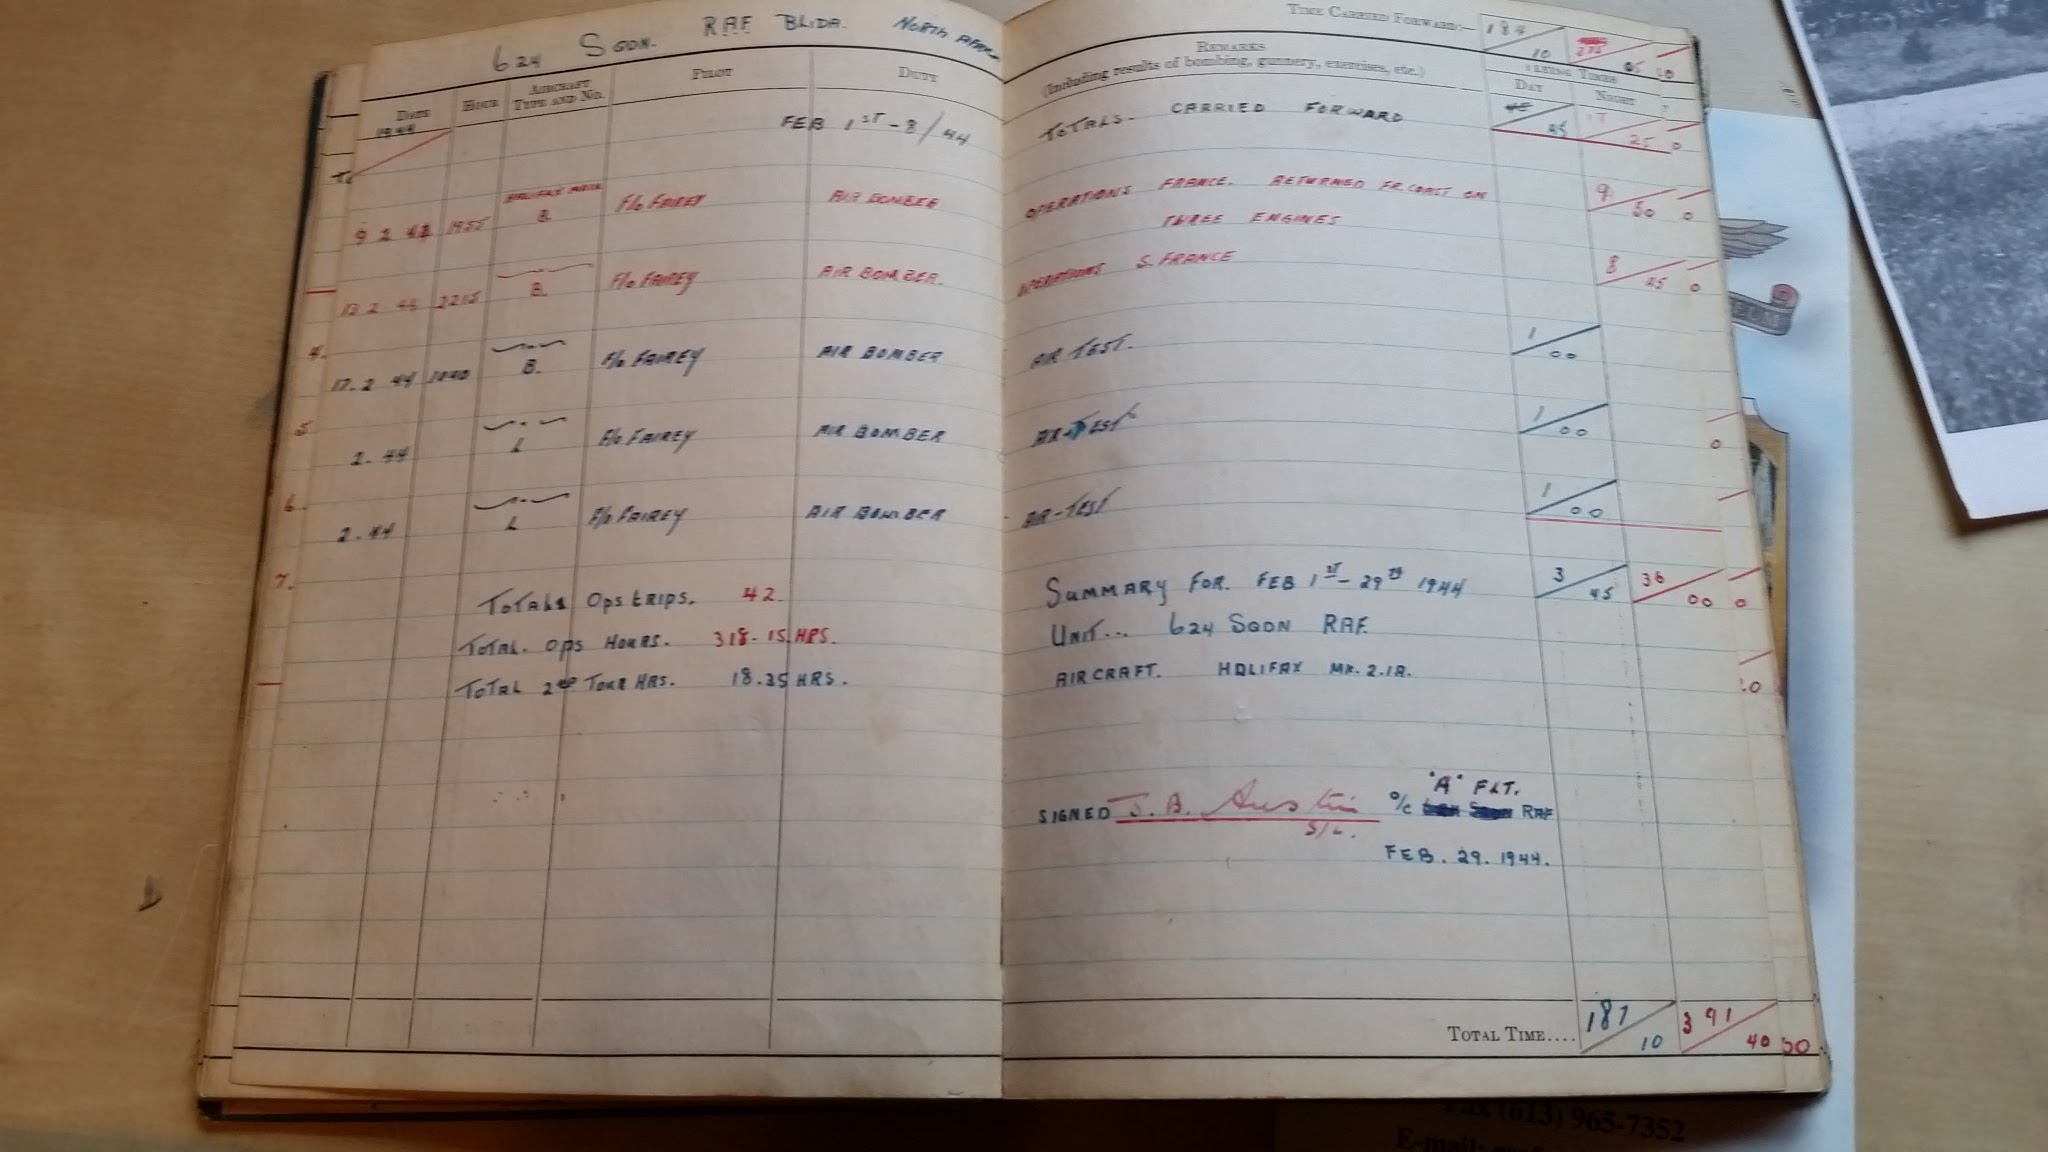 624 SQDN. RAF BLIDA. NORTH
DATE HOUR AIRCRAFT TYPE AND NO. PILOT DUTY
1944
FEB 1ST - 8/44
9 2 44 1955 B. F/O FAIREY AIR BOMBER
13 2 44 2215 B. F/O FAIREY AIR BOMBER.
17. 2 44 B. F/O FAIREY AIR BOMBER
2. 44 L F/O FAIREY AIR BOMBER
2. 44 L F/O FAIREY AIR BOMBER
4.
5
6.
7.
TOTALS OPS TRIPS. 42
TOTAL. OPS HOURS. 318.15 HRS.
TOTAL 2ND TOUR HRS. 18.35 HRS.
TIME CARRIED FORWARD:— 184 10
REMARKS
(Including results of bombing, gunnery, exercises, etc.)
FLYING TIMES
DAY NIGHT
TOTALS. CARRIED FORWARD 45 25 0
OPERATIONS FRANCE. RETURNED FR. COAST ON 9 50 0
THREE ENGINES
OPERATIONS S. FRANCE 8 45 0
AIR TEST. 1 00
AIR-TEST 1 00 0
AIR-TEST 1 00
SUMMARY FOR. FEB 1ST - 29TH 1944 3 45 36 00 0
UNIT... 624 SQDN RAF.
AIRCRAFT. HALIFAX MK. 2.1A.
"A" FLT.
SIGNED J. B. Austin O/C RAF
S/L.
FEB. 29. 1944.
TOTAL TIME.... 187 10 391 40 00
Fax (613) 965-7352
E-mail: